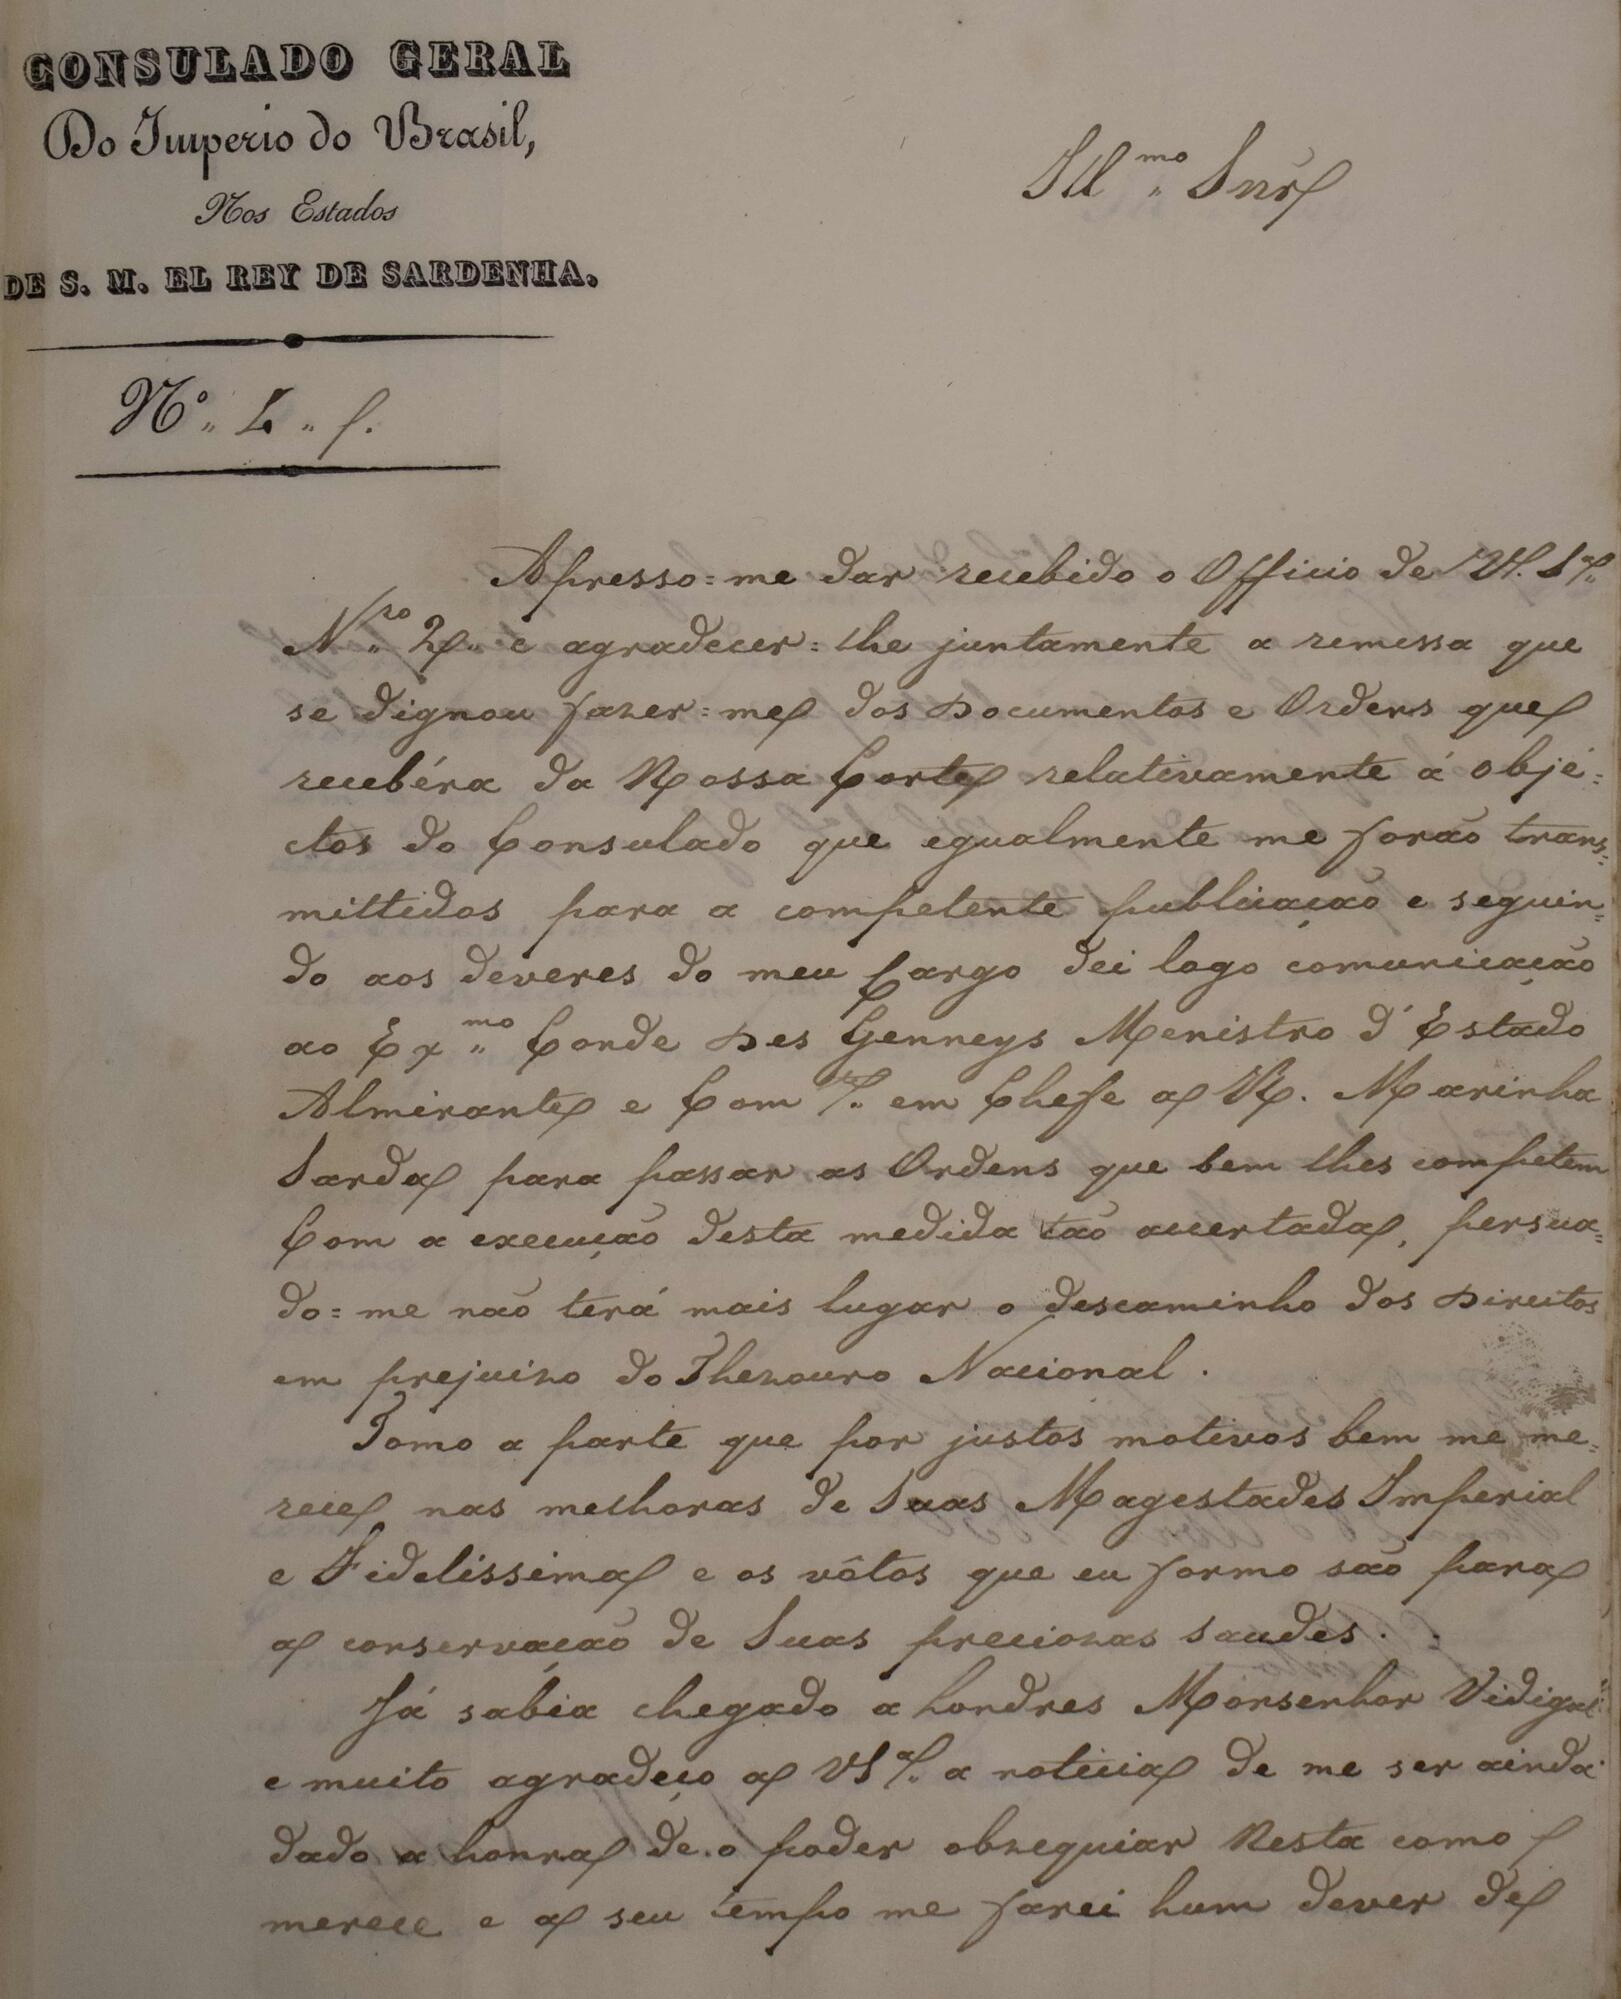 CONSULADO GERAL
Do Imperio do Brasil,
Nos Estados
DE S. M. EL REY DE SARDENHA.
Ill.mo Snr
Nº
Apresso=me dar recebido o Officio de V. S.a
N.ro 2 e agradecer=lhe juntamente a remessa que
se dignou fazer=me dos Documentos e Ordens que
recebéra da Nossa Corte relativamente á obje=
ctos do Consulado que egualmente me forão trans=
mittidos para a competente publicação e seguin=
do aos deveres do meu Cargo dei logo comunicação
ao Ex.mo Conde Des Genneys Menistro d'Estado
Almirante e Com.e em Cheffe a R. Marinha
Sarda para passar as Ordens que bem lhes competem
Com a execução desta medida tão acertada, persua=
do=me não terá mais lugar o descaminho dos Direitos
em prejuizo do Thezouro Nacional.
Tomo a parte que por justos motivos bem me me=
rece nas melhoras de Suas Magestades Imperial
e Fidelissima e os vôtos que eu formo são para
a conservação de Suas preciozas saudes.
Já sabia chegado a Londres Monsenhor Vidigal
e muito agradeço a VS.a a noticia de me ser ainda
dado a honra de o poder obzequiar Nesta como
merece e a seu tempo me farei hum dever de